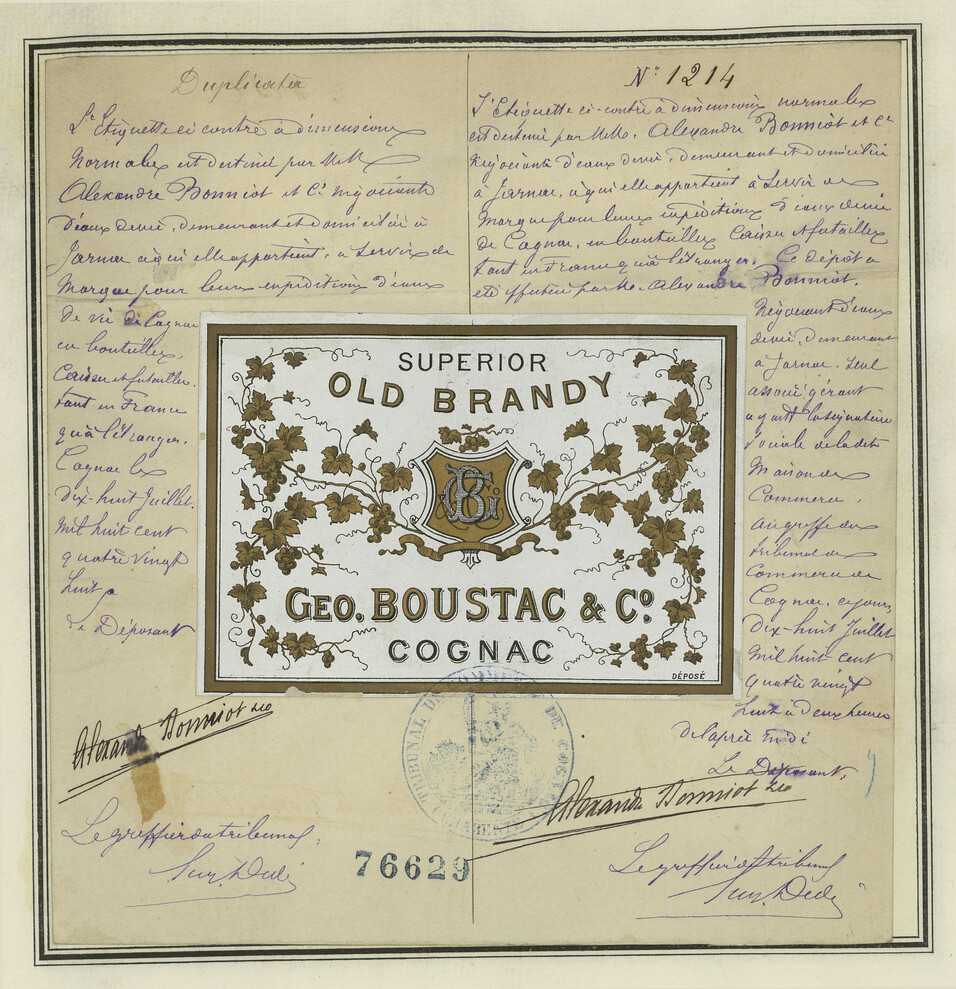 Duplicata
L'Etiquette ci contre à dimensions
Normales est destinée par MM
Alexandre Bonniot et Cie négociants
d'eaux devie, demeurant et domiciliés à
Jarnac à qui elle appartient, à servir de
Marque pour leurs expéditions d'eaux
de vie de Cognac
en bouteilles,
Caisses et futailles.
tant en France
qu'à l'étranger.
Cognac le
dix-huit Juillet
mil huit cent
quatre vingt
huit
Le Déposant
Alexandre Bonniot & Co
Le greffier du tribunal
N° 1214
L'Etiquette ci-contre à dimensions normales
est destinée par MM. Alexandre Bonniot et Cie
Négociants d'eaux devie, demeurant et domiciliés
à Jarnac, à qui elle appartient à servir de
Marque pour leurs expéditions d'eaux devie
de Cognac, en bouteilles Caisses et futailles
tant en France qu'à l'étranger. Ce dépôt a
été effectué par M. Alexandre Bonniot,
Négociant d'eaux
devie, demeurant
à Jarnac, seul
associé gérant
ayant la signature
sociale de la dite
Maison de
Commerce,
au greffe du
tribunal de
Commerce de
Cognac, ce jour
dix-huit Juillet
mil huit cent
quatre vingt
huit à deux heures
de l'après midi
Le Déposant,
Alexandre Bonniot & Co
Le greffier du tribunal
SUPERIOR
OLD BRANDY
BC
GEO. BOUSTAC & Co.
COGNAC
DÉPOSÉ
TRIBUNAL DE COMMERCE DE COGNAC
(CHARENTE)
76629